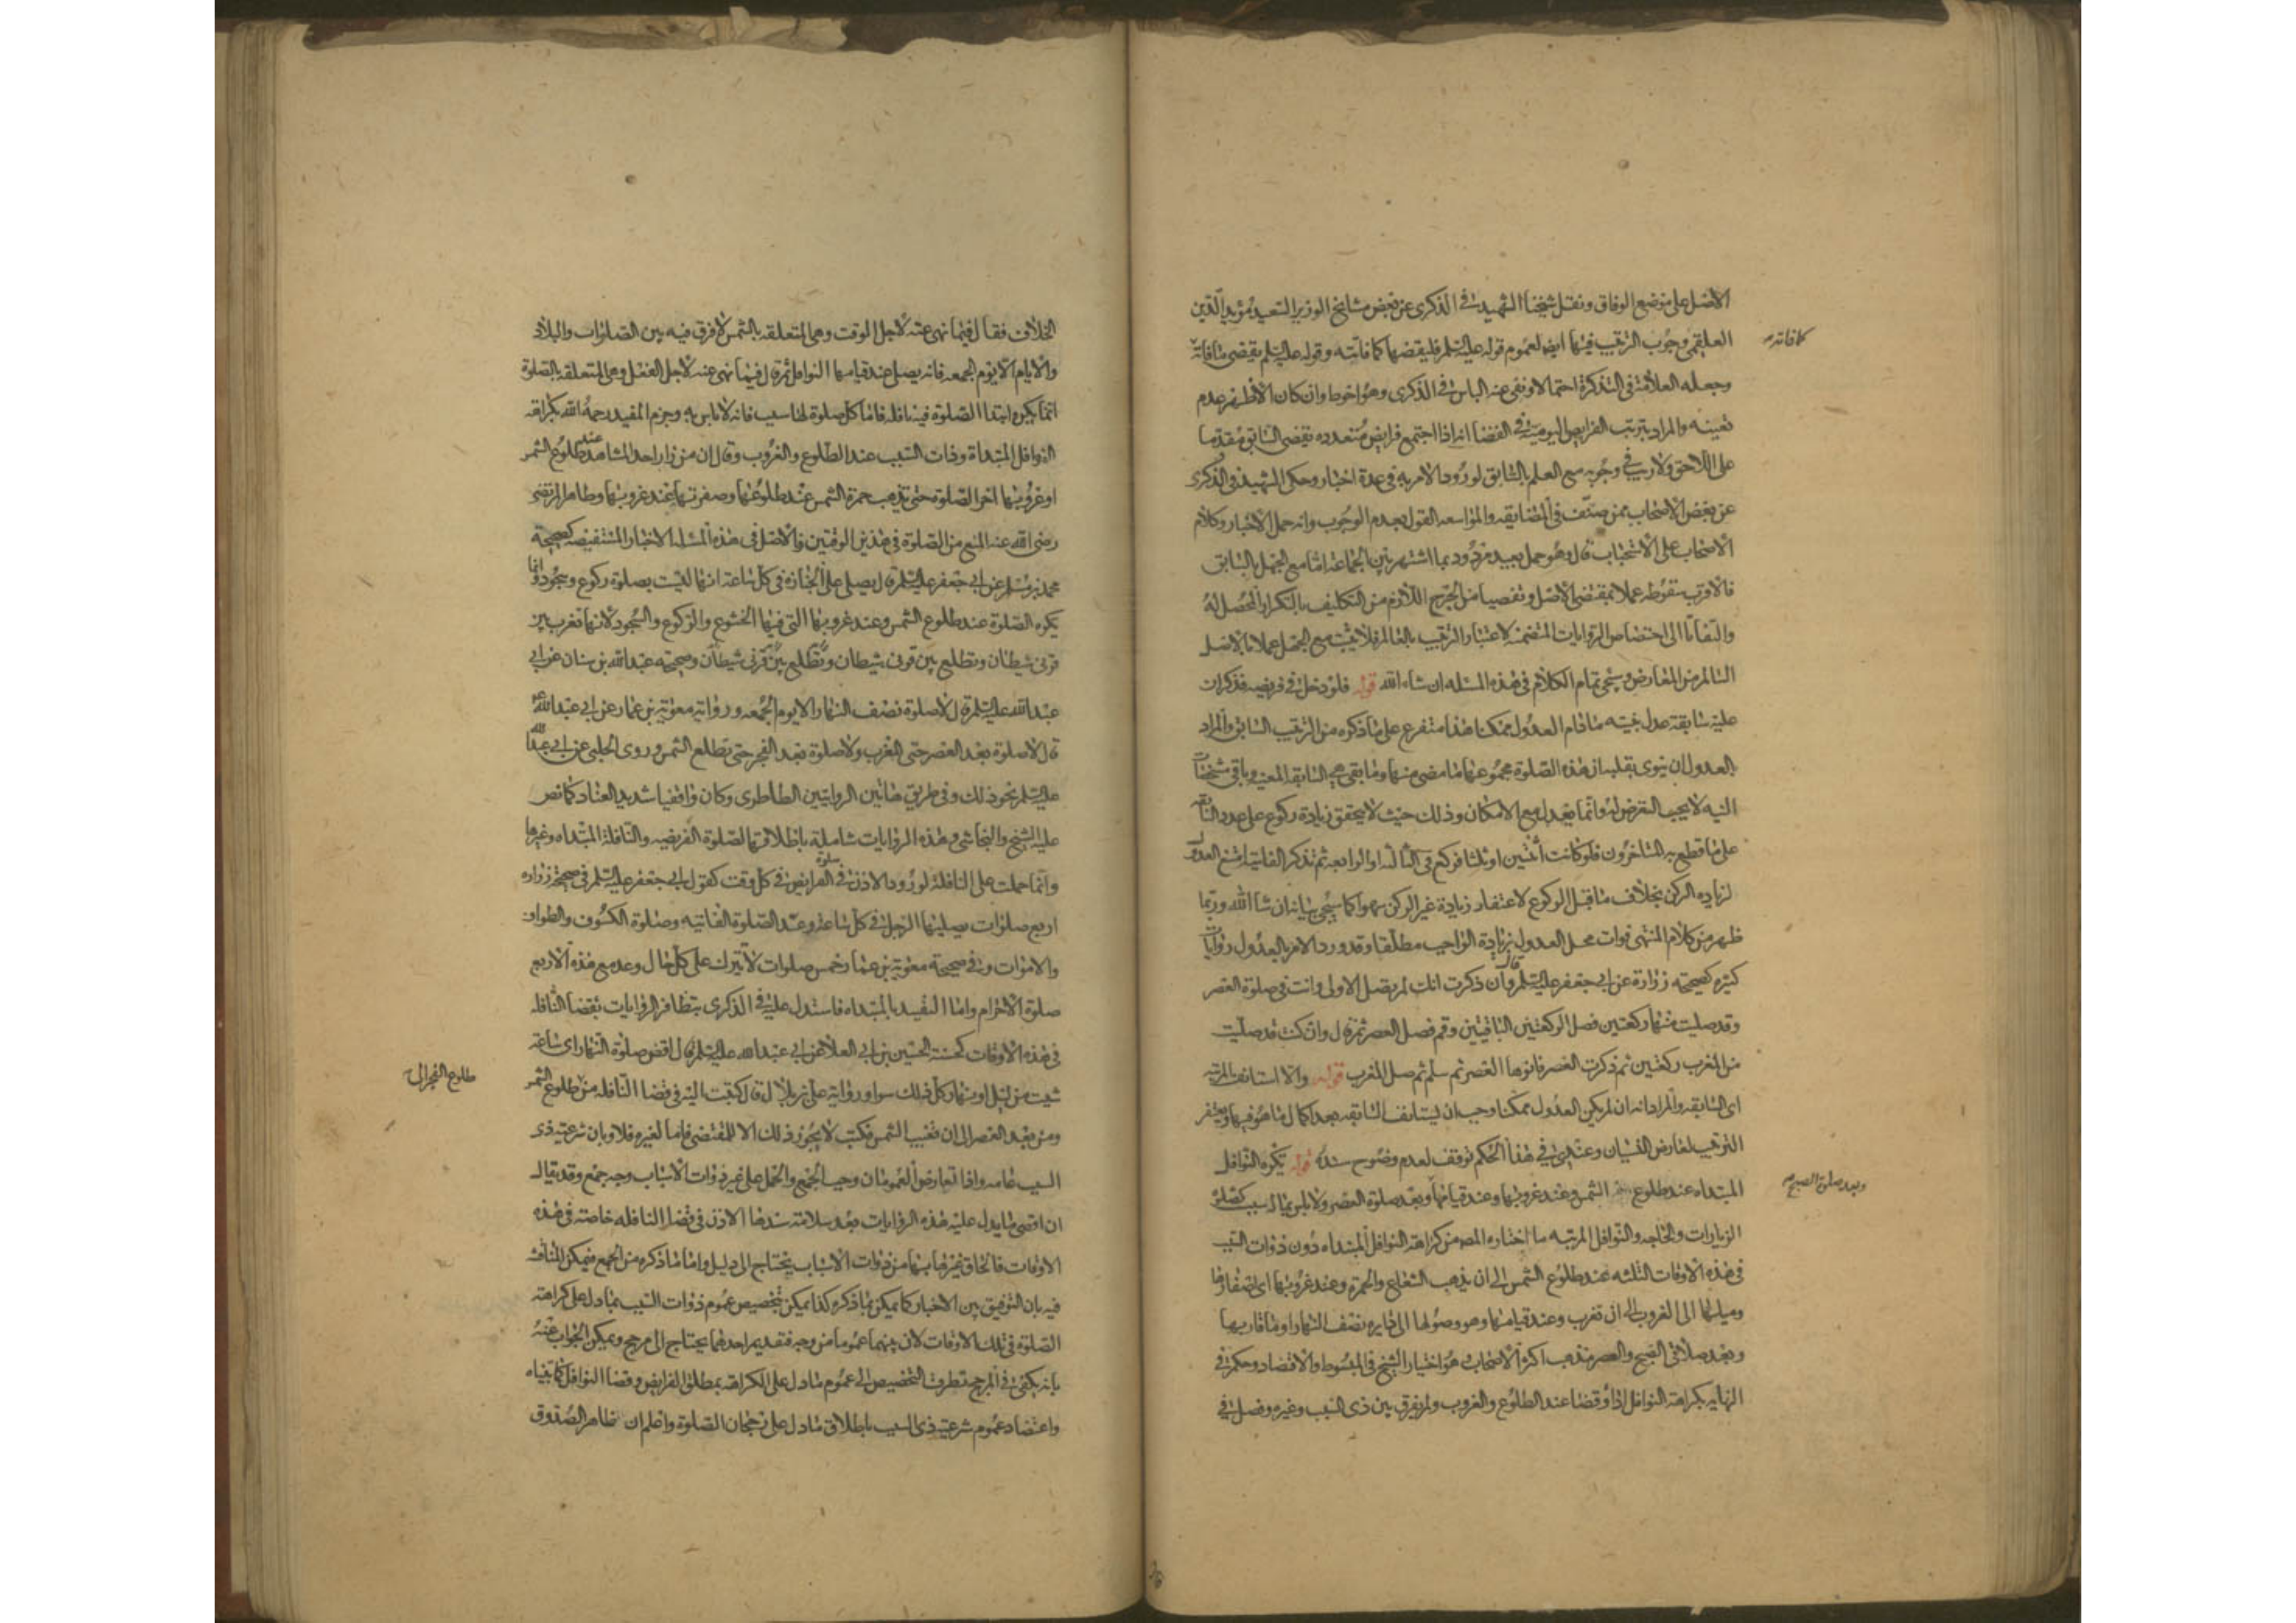 الاصل على موضع الوفاق ونقل شيخنا الشهيد في الذكرى عن بعض مشايخ الوزير السعيد مؤيد الدين
العلقمي وجوب الترتيب فيها ايضا لعموم قوله عليه السلم فليقضها كما فاتته وقوله عليه السلم يقضي ما فاته
كما فاته
وجعله العلامة في التذكرة احتمالا ونفى عنه الباس في الذكرى وهو احوط وان كان الاظهر عدم
تعينه والمراد بترتب الفرايض اليومية في القضا انه اذا اجتمع فرايض متعدده يقضي السابق مقدما
على اللاحق ولا ريب في وجوبه مع العلم بالسابق لورود الامر به في عدة اخبار وحكى الشهيد في الذكرى
عن بعض الاصحاب ممن صنف في المضايقه والمواسعه القول بعدم الوجوب وانه حمل الاخبار وكلام
الاصحاب على الاستحباب قال وهو حمل بعيد مردود بما اشتهر بين الجماعه اما مع الجهل بالسابق
فالاقرب سقوطه عملا بمقتضى الاصل وتفصيا من الحرج اللازم من التكليف بالتكرار المحصل له
والتفاتا الى اختصاص الروايات المتضمنه لاعتبار الترتيب بالعالم فلا يثبت مع الجهل عملا بالاصل
السالم من المعارض وسيجي تمام الكلام في هذه المسئله ان شاء الله قوله فلو دخل في فريضه فذكر ان
عليه سابقة عدل بنيته ما دام العدول ممكنا هذا متفرع على ما ذكره من الترتيب السابق والمراد
بالعدول ان ينوي بقلبه ان هذه الصلوة مجموعها ما مضى منها وما بقي هي السابقه المعينه وباقي مشخصات
النيه لا يجب التعرض له وانما يعدل مع الامكان وذلك حيث لا يتحقق زيادة ركوع على عدد السابقه
على ما قطع به المتاخرون فلو كانت اثنتين او ثلثا فركع في الثالثه او الرابعه ثم تذكر الفايته امتنع العدول
لزياده الركن بخلاف ما قبل الركوع لاغتفار زيادة غير الركن سهوا كما سيجي بيانه ان شا الله وربما
ظهر من كلام المنتهى فوات محل العدول بزيادة الواجب مطلقا وقد ورد الامر بالعدول روايات
كثيره كصحيحه زرارة عن ابي جعفر عليه السلم قال وان ذكرت انك لم تصل الاولى وانت في صلوة العصر
وقد صليت منها ركعتين فصل الركعتين الباقيتين وقم فصل العصر ثم قال وان كنت قد صليت
من المغرب ركعتين ثم ذكرت العصر فانوها العصر ثم سلم ثم صل المغرب قوله والا استانف المرتبه
اي السابقه والمراد انه ان لم يكن العدول ممكنا وجب ان يستانف السابقه بعد اكمال ما هو فيها ويغتفر
الترتيب لعارض النسيان وعندي في هذا الحكم توقف لعدم وضوح سنده قوله يكره النوافل
المبتداه عند طلوع الشمس وعند غروبها وعند قيامها وبعد صلوة العصر ولا باس بما له سبب كصلوة
وبعد صلوة الصبح
الزيارات والحاجه والنوافل المرتبه ما اختاره المص من كراهة النوافل المبتداه دون ذوات السبب
في هذه الاوقات الثلثه عند طلوع الشمس الى ان يذهب الشعاع والحمرة وعند غروبها اي اصفرارها
وميلها الى الغروب الى ان تغرب وعند قيامها وهو وصولها الى دايره نصف النهار او ما قاربها
وبعد صلاتي الصبح والعصر مذهب اكثر الاصحاب هو اختيار الشيخ في المبسوط والاقتصاد وحكم في
النهايه بكراهة النوافل اداء وقضا عند الطلوع والغروب ولم يفرق بين ذي السبب وغيره وفصل في
الخلاف فقال فيما نهي عنه لاجل الوقت وهي المتعلقه بالشمس لا فرق فيه بين الصلوات والبلاد
والايام الا يوم الجمعه فانه يصلى عند قيامها النوافل ثم قال فيما نهي عنه لاجل الفعل وهي المتعلقه بالصلوة
انما يكره ابتدا الصلوة فيه نافله فاما كل صلوة لها سبب فانه لا باس به وجزم المفيد رحمه الله بكراهة
النوافل المبتداة وذات السبب عند الطلوع والغروب وقال ان من زار احد المشاهد عند طلوع الشمس
او غروبها اخر الصلوة حتى تذهب حمرة الشمس عند طلوعها وصفرتها عند غروبها وظاهر المرتضى
رضي الله عنه المنع من الصلوة في هذين الوقتين والاصل في هذه المسئله الاخبار المستفيضه كصحيحة
محمد بن مسلم عن ابي جعفر عليه السلم قال يصلى على الجنازه في كل ساعة انها ليست بصلوة ركوع وسجود وانما
يكره الصلوة عند طلوع الشمس وعند غروبها التي فيها الخشوع والركوع والسجود لانها تغرب بين
قرني شيطان وتطلع بين قرني شيطان وتطلع بين قرني شيطان وصحيحة عبد الله بن سنان عن ابي
عبد الله عليه السلم قال لا صلوة نصف النهار الا يوم الجمعه ورواية معوية بن عمار عن ابي عبد الله ع
قال لا صلوة بعد العصر حتى المغرب ولا صلوة بعد الفجر حتى تطلع الشمس وروى الحلبي عن ابي عبد الله
عليه السلم نحو ذلك وفي طريق هاتين الروايتين الطاطري وكان واقفيا شديد العناد كما نص
عليه الشيخ والنجاشي وهذه الروايات شاملة باطلاقها لصلوة الفريضه والنافلة المبتداه وغيرها
وانما حملت على النافلة لورود الاذن في صلوة الفرايض في كل وقت كقول ابي جعفر عليه السلم في صحيحة زراره
اربع صلوات يصليها الرجل في كل ساعة وعد الصلوة الفايته وصلوة الكسوف والطواف
والاموات وفي صحيحة معوية بن عمار خمس صلوات لا تترك على كل حال وعد مع هذه الاربع
صلوة الاحرام واما التقييد بالمبتداه فاستدل عليه في الذكرى بتظافر الروايات بقضا النافله
في هذه الاوقات كحسنة الحسين بن ابي العلا عن ابي عبد الله عليه السلم قال اقض صلوة النهار اي ساعة
شيت من ليل او نهار كل ذلك سوا ورواية علي بن بلال قال كتبت اليه في قضا النافله من طلوع الشمس
طلوع الفجر الى
ومن بعد العصر الى ان تغيب الشمس فكتب لا يجوز ذلك الا للمقتضي فاما لغيره فلا وبان شرعية ذي
السبب عامه واذا تعارض العمومان وجب الجمع والحمل على غير ذوات الاسباب وجه جمع وقد يقال
ان اقصى ما يدل عليه هذه الروايات بعد سلامة سندها الاذن في قضا النافله خاصة في هذه
الاوقات فالحاق غيرها بها من ذوات الاسباب يحتاج الى دليل واما ما ذكره من الجمع فيمكن المناقشه
فيه بان التوفيق بين الاخبار كما يمكن بما ذكره كذا يمكن بتخصيص عموم ذوات السبب بما دل على كراهة
الصلوة في تلك الاوقات لان بينهما عموما من وجه فتقديم احدهما يحتاج الى مرجح ويمكن الجواب عنه
بانه يكفي في المرجح تطرق التخصيص الى عموم ما دل على الكراهة بمطلق الفرايض وقضا النوافل كما بيناه
واعتضاد عموم شرعية ذي السبب باطلاق ما دل على رجحان الصلوة واعلم ان ظاهر الصدوق